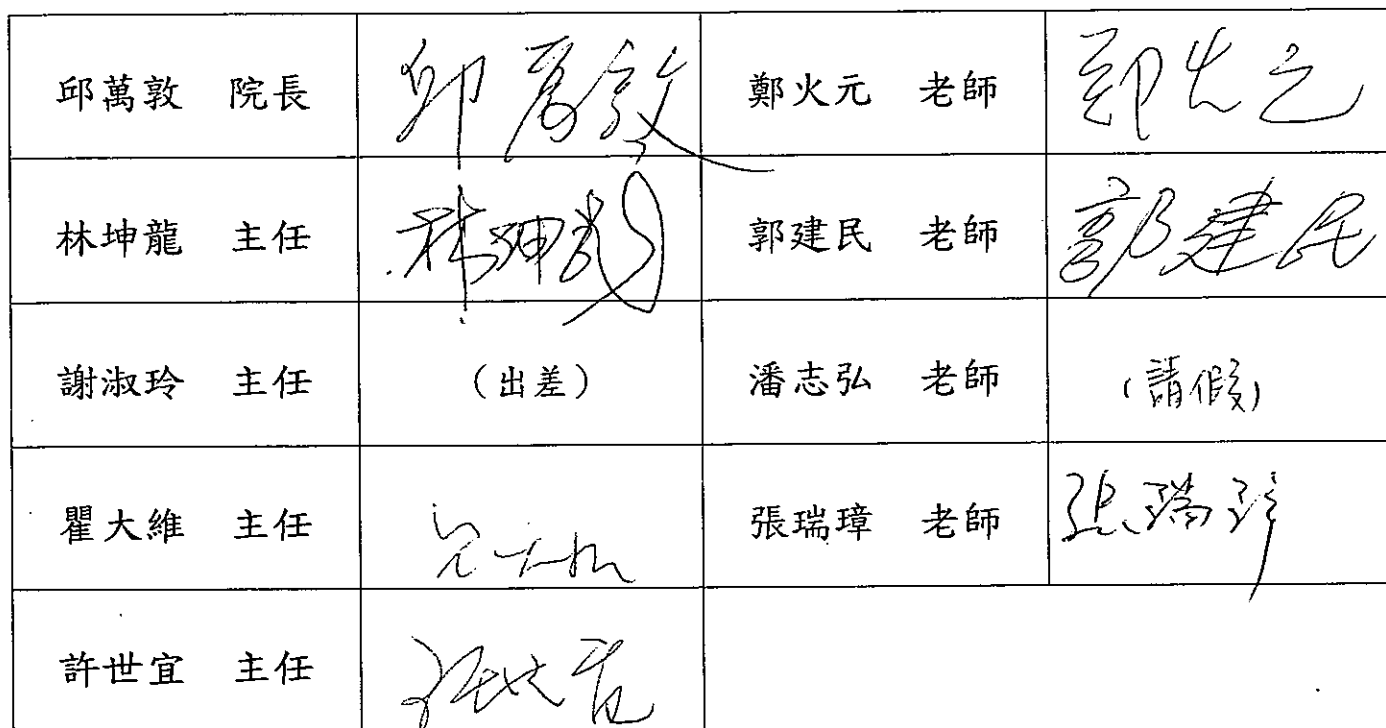 邱萬敦 院長 邱萬敦 鄭火元 老師 鄭火元
林坤龍 主任 林坤龍 郭建民 老師 郭建民
謝淑玲 主任 (出差) 潘志弘 老師 (請假)
瞿大維 主任 張瑞璋 老師 張瑞璋
許世宜 主任 許世宜